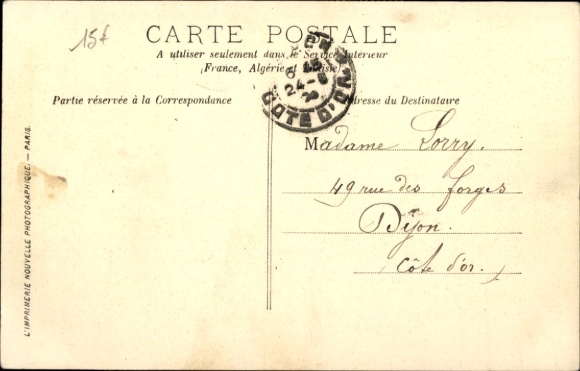 15f
CARTE POSTALE
A utiliser seulement dans le Service Intérieur
(France, Algérie et Tunisie)
Partie réservée à la Correspondance
Adresse du Destinataire
24-6
COTE D'OR
Madame Lorry.
49 rue des forges
Dijon.
Côte d'or.
L'IMPRIMERIE NOUVELLE PHOTOGRAPHIQUE. — PARIS.